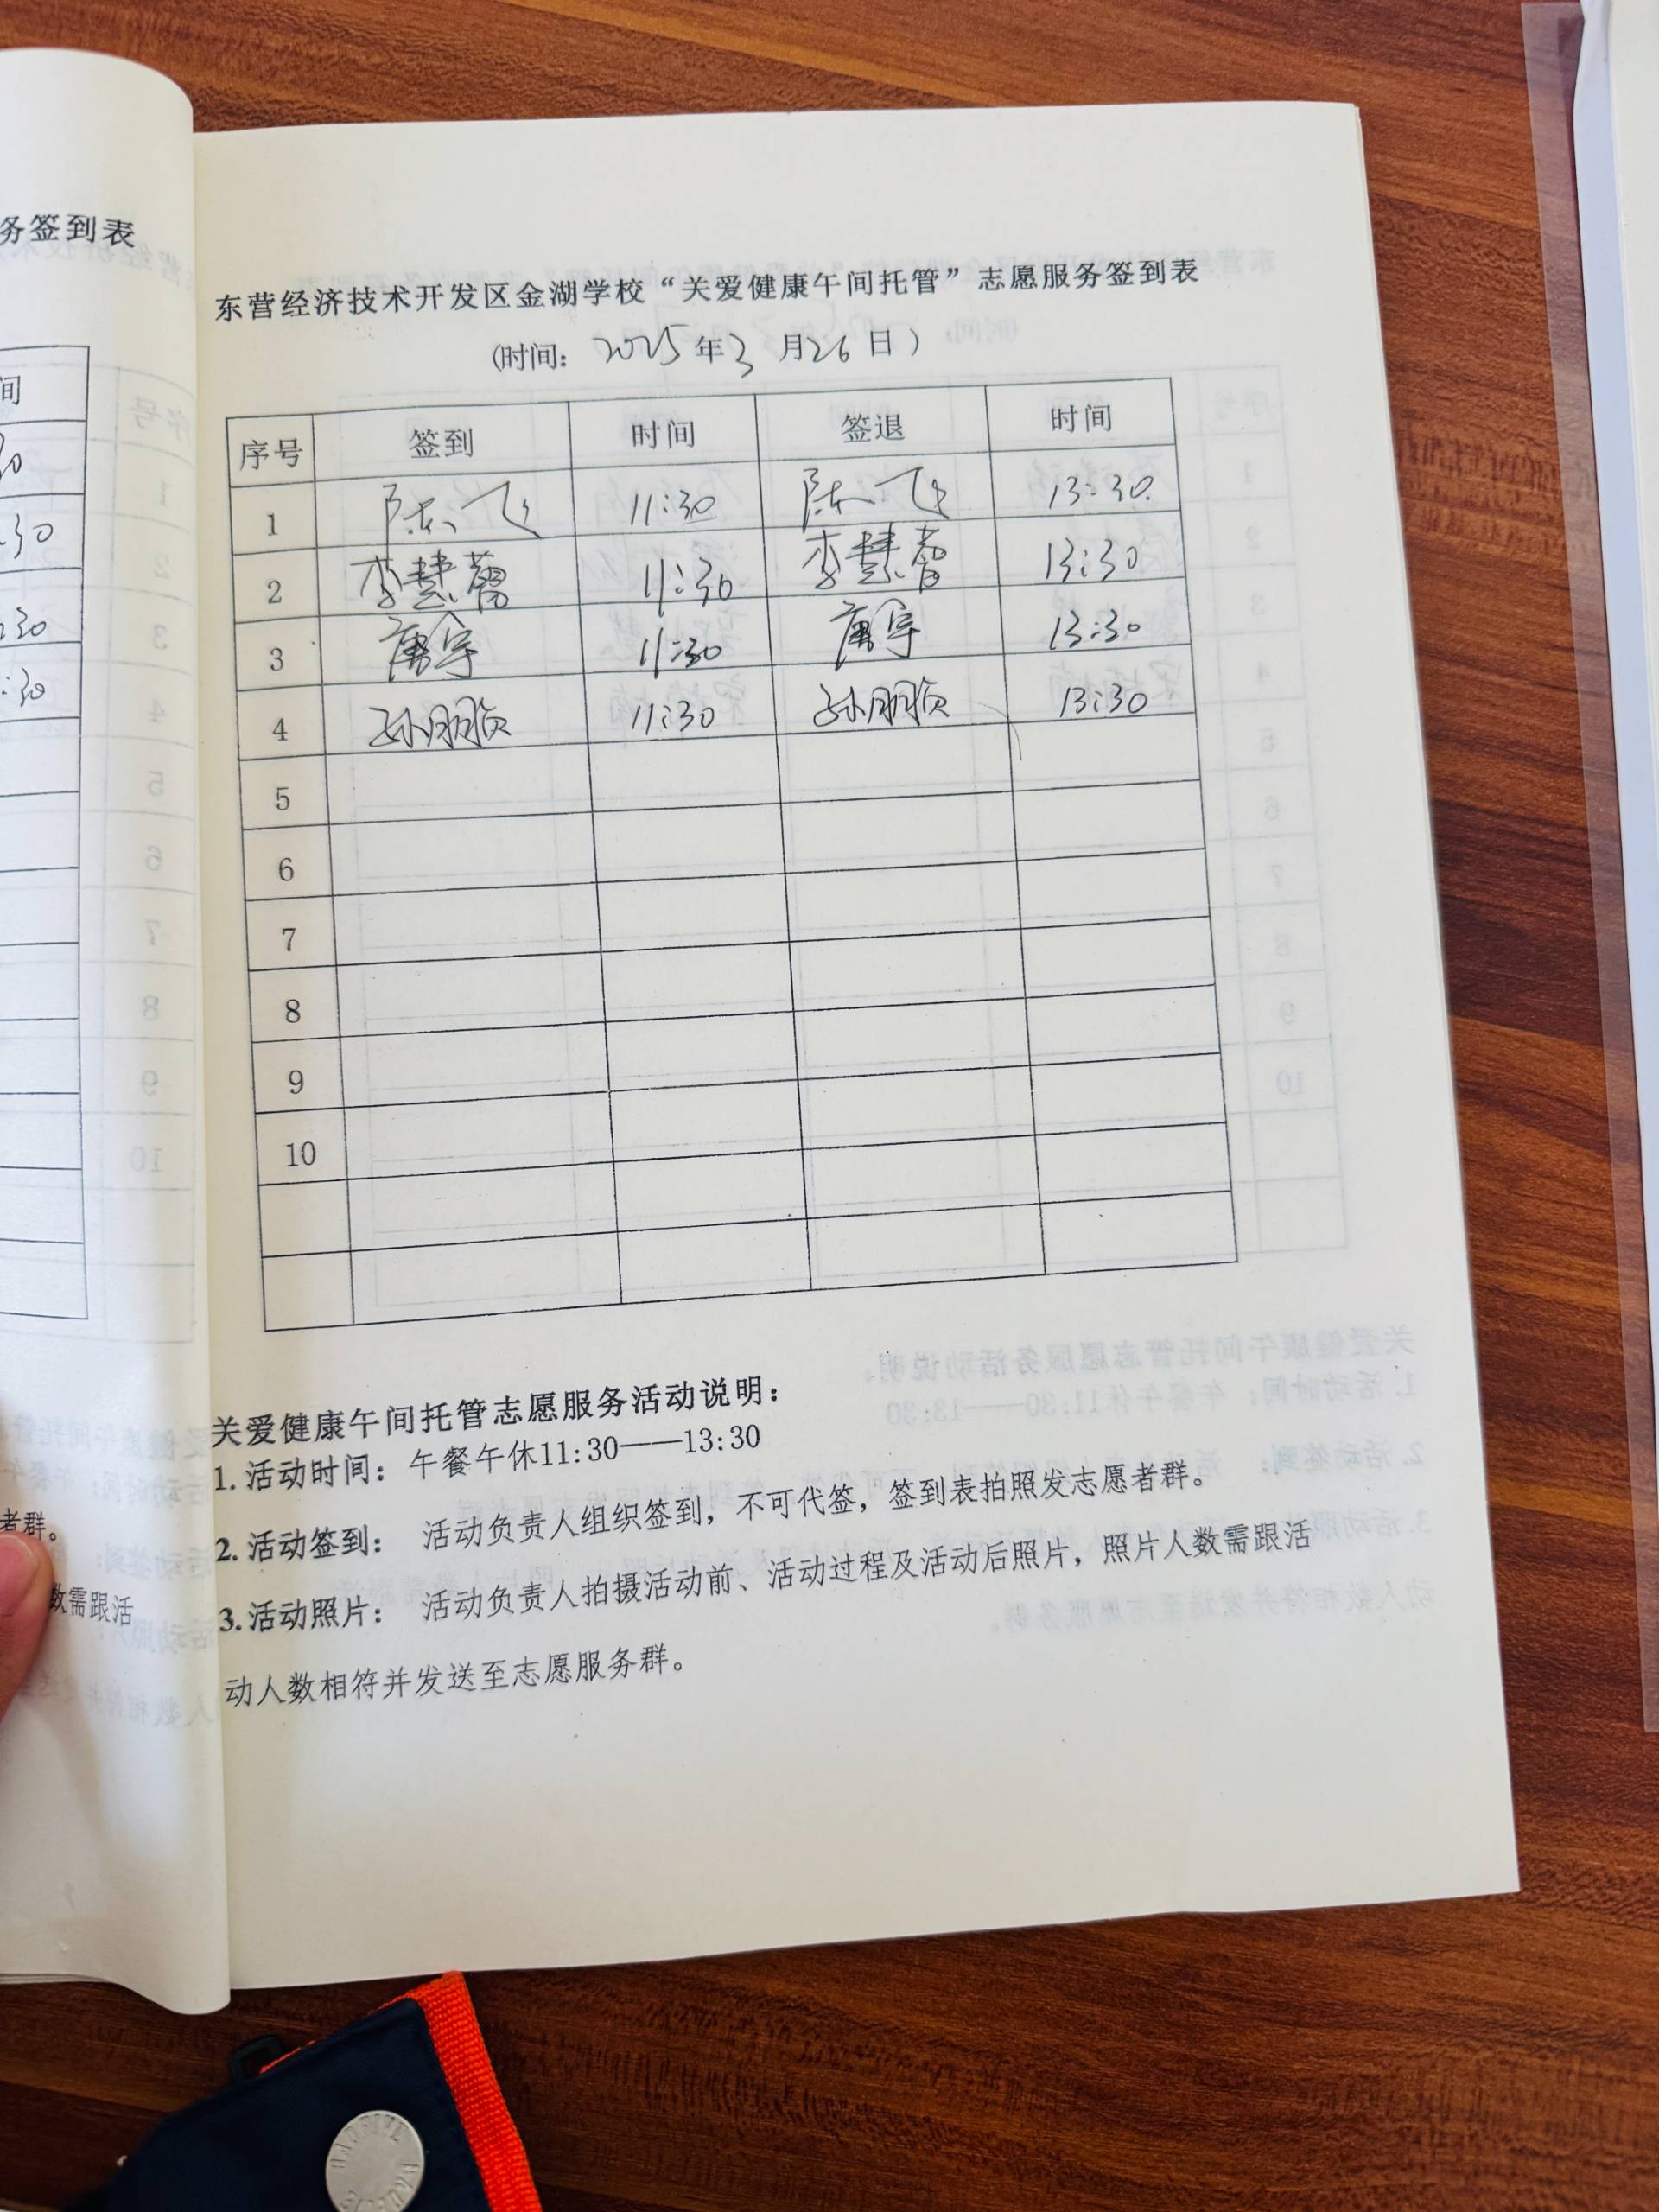 务签到表
间
30
:30
:30
:30
者群。
数需跟活
东营经济技术开发区金湖学校“关爱健康午间托管”志愿服务签到表
(时间: 2025年3月26日)
序号 签到 时间 签退 时间
1 陈飞 11:30 陈飞 13:30
2 李慧 11:30 李慧 13:30
3 11:30 13:30
4 孙朋 11:30 孙朋 13:30
5
6
7
8
9
10
关爱健康午间托管志愿服务活动说明:
1.活动时间: 午餐午休11:30——13:30
2.活动签到: 活动负责人组织签到,不可代签,签到表拍照发志愿者群。
3.活动照片: 活动负责人拍摄活动前、活动过程及活动后照片,照片人数需跟活
动人数相符并发送至志愿服务群。